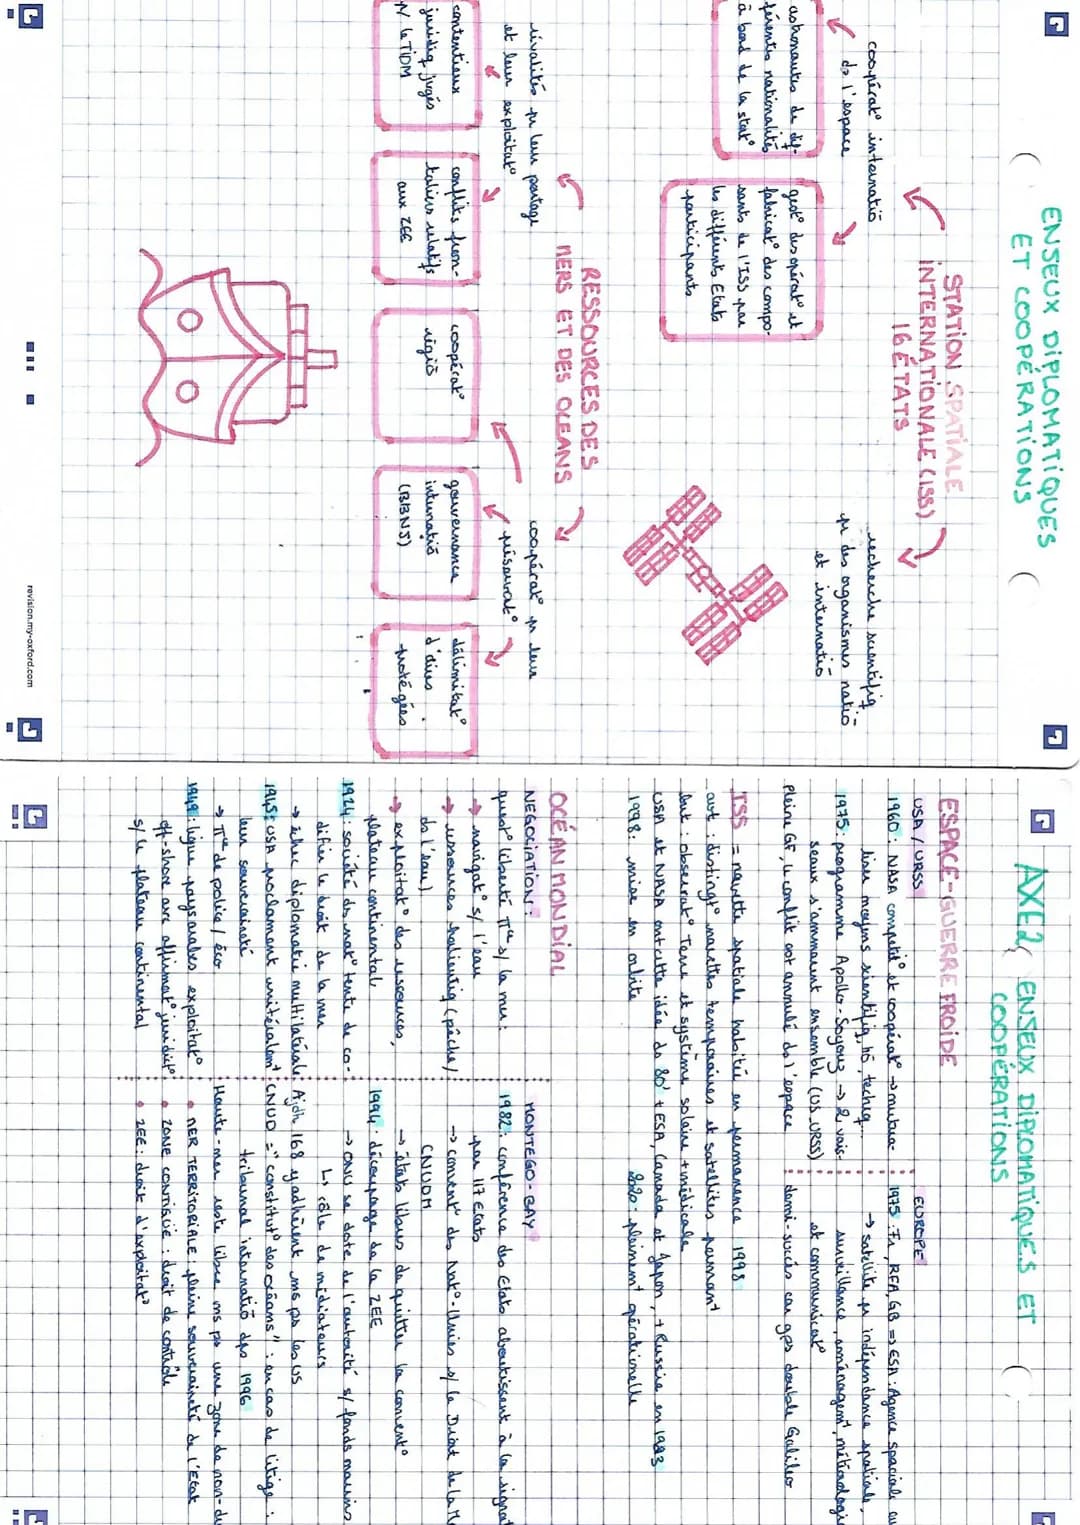 ENSEUX DIPLOMATIQUES
ET COOPÉRATIONS
STATION SPATIALE
INTERNATIONALE (ISS)
16 ÉTATS
coopérat° internatio
ds l'espace
astronautes de dif-
férentes nationalités
à bord de la stat°
gest° des opérat° et
fabricat° des compo-
sants de l'ISS par
les différents Etats
participants
recherche scientifiq
pr des organismes natio
et internatio
RESSOURCES DES
MERS ET DES OCEANS
rivalités pr leur partage
et leur exploitat°
contentieux
juridiq jugés
p/ le TIDM
conflits fron-
taliers relatifs
aux ZEE
coopérat° pr leur
préservat°
coopérat°
régio
gouvernance
internatio
(BBNJ)
délimitat°
d'aires
protégées
revision.my-oxford.com
AXE 2, ENSEUX DIPLOMATIQUES ET
COOPÉRATIONS
ESPACE-GUERRE FROIDE
USA / URSS
1960: NASA compétit° et coopérat° → mutua-
liser moyens scientifiq, hô, techniq...
1975: programme Apollo-Soyouz → 2 vais-
seaux s'ammarrent ensemble (US, URSS)
pleine GF, le conflit est annulé ds l'espace
EUROPE
1975: Fr, RFA, GB => ESA: Agence spaciale eu
→ satellite pr indépendance spatiale,
surveillance, aménagemt, météorologi
et communicat°
demi-succès car gps double Galileo
ISS = navette spatiale habitée en permanence 1998
aut: distingt° navettes temporaires et satellites permant
but: observat° Terre et système solaire + médicale
USA et NASA ont cette idée ds 80' + ESA, Canada et Japon, + Russie en 1993
1998: mise en orbite
2020: pleinemt opérationnelle
OCÉAN MONDIAL
NEGOCIATION:
quest° liberté π^que s/ la mer:
→ navigat° s/ l'eau
→ ressources halieutiq (pêche/
ds l'eau)
→ exploitat° des ressources,
plateau continental
1924: société ds nat° tente de co-
difier le droit de la mer
→ échec diplomatie multilatérale
1945: USA proclament unitéralemt
leur souveraineté
→ π^que de police / éco
1949: ligue pays arabes exploitat°
off-shore avc affirmat° juridict°
s/ le plateau continental
MONTEGO-BAY
1982: conférence des Etats aboutissent à la signat
par 117 Etats
→ convent° des Nat°-Unies s/ le Droit de la M
CNUDM
→ états libres de quitter la convent°
1994: découpage de la ZEE
→ ONU se dote de l'autorité s/ fonds marins
↳ rôle de médiateurs
Ajdh, 168 y adhèrent, ms ps les US
CNUD = "constitut° des océans": en cas de litige:
tribunal internatio dps 1996
Haute-mer reste libre ms ps une zone de non-d
• MER TERRITORIALE: pleine souveraineté de l'Etat
• ZONE CONTIGUE: droit de contrôle
• ZEE: droit d'exploitat°